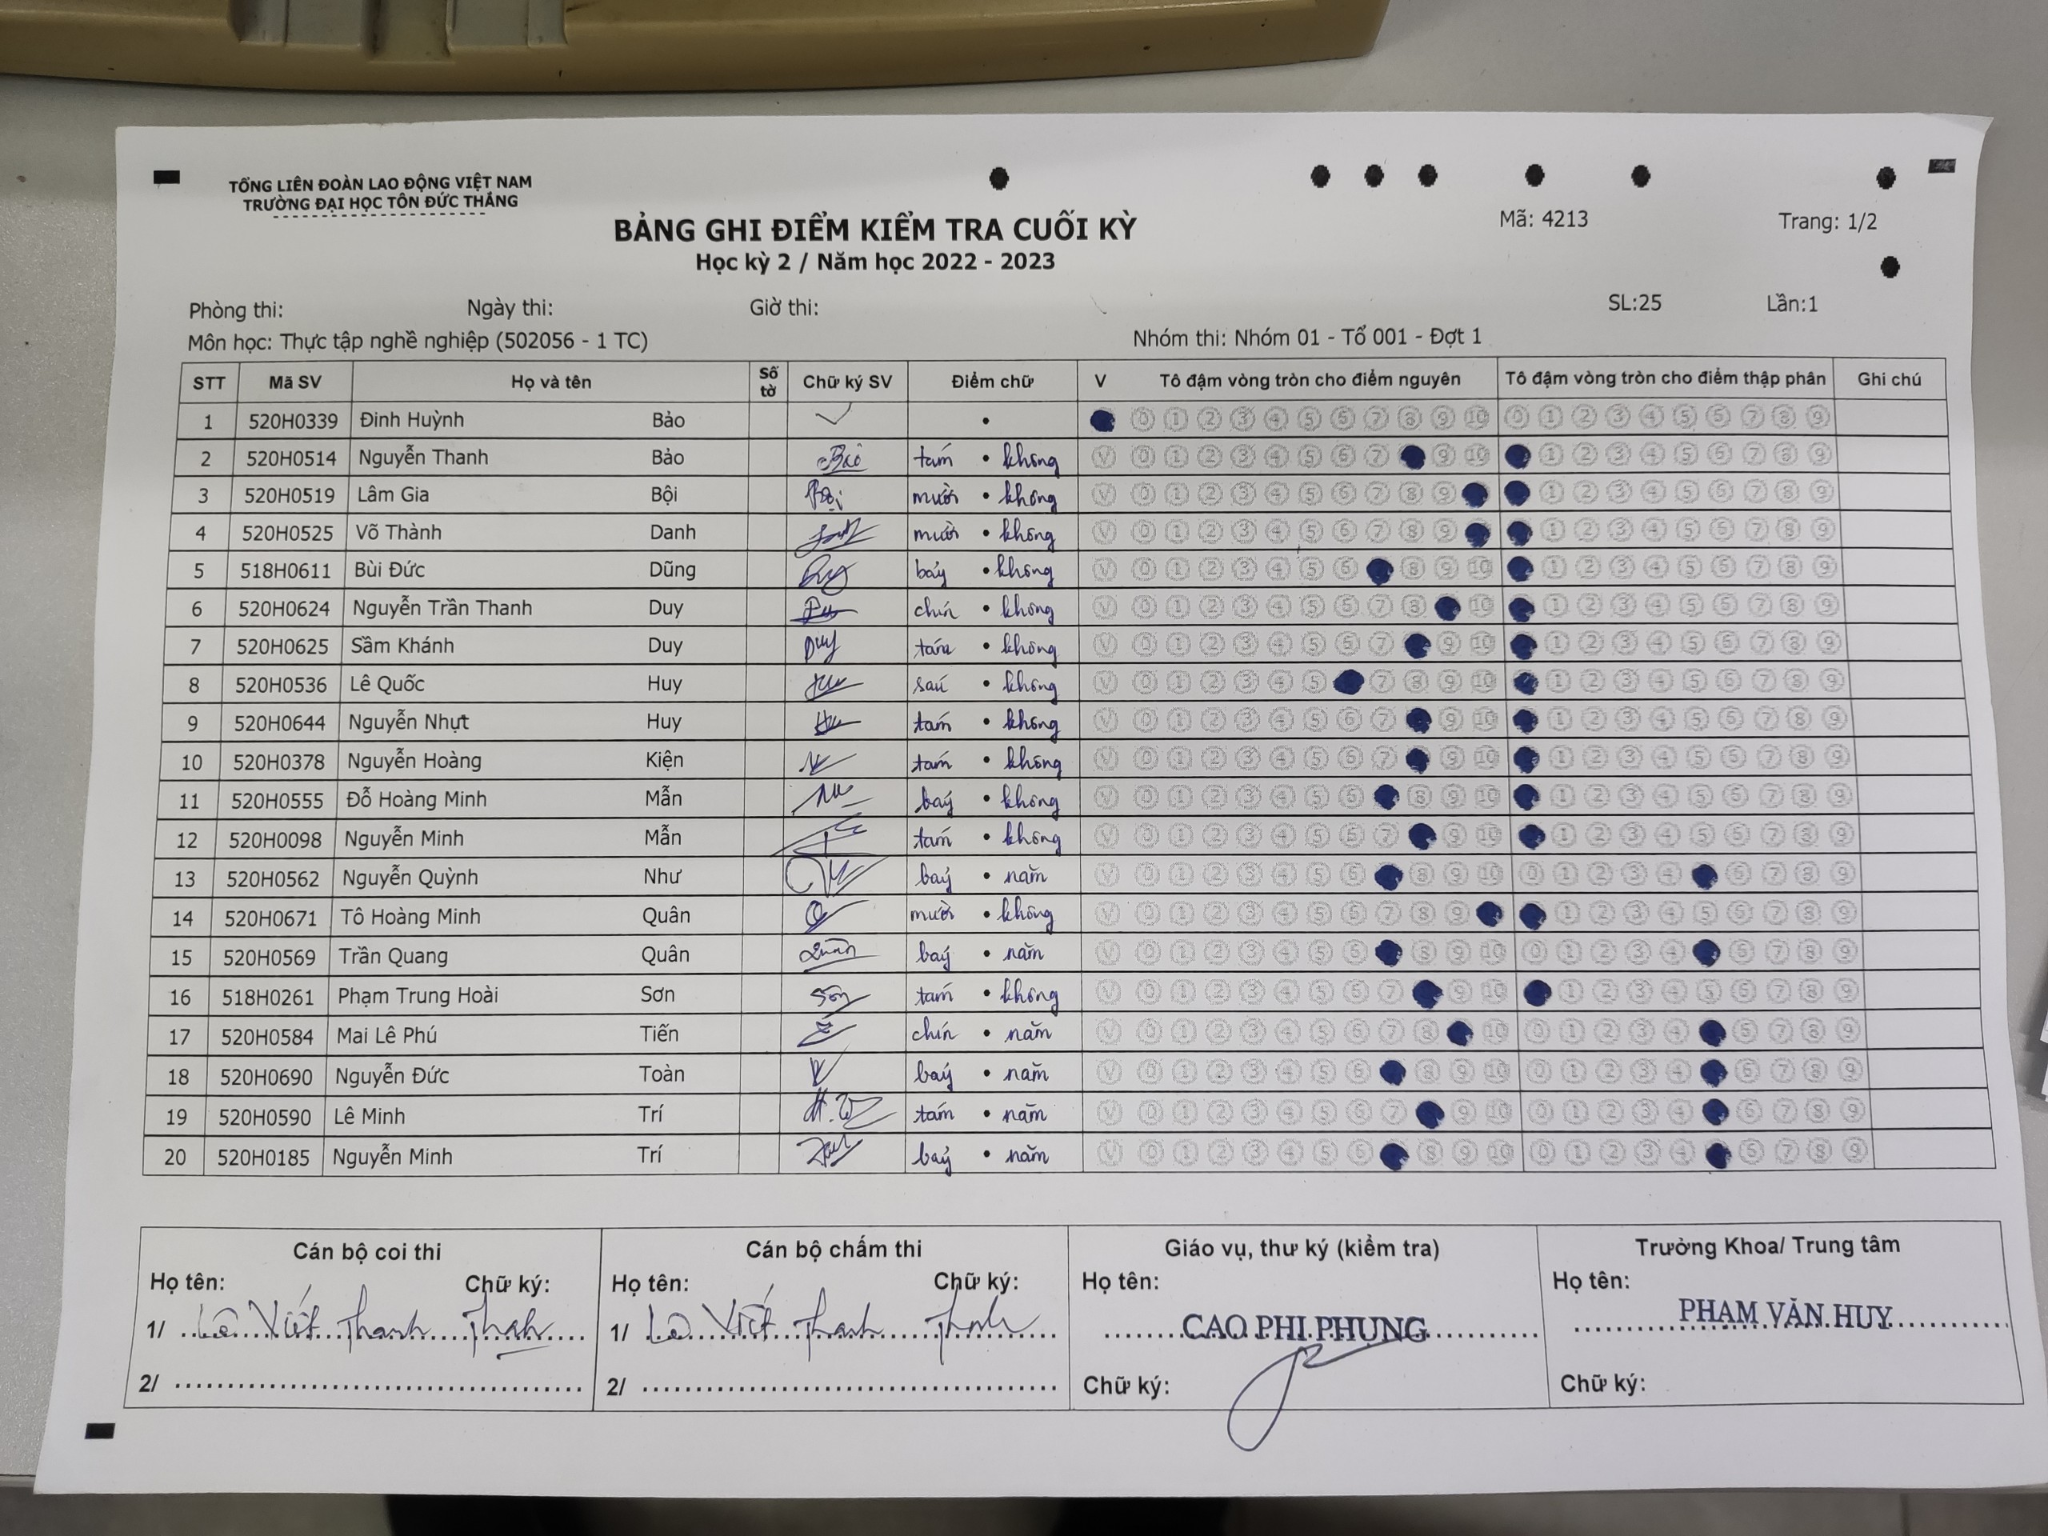 TỔNG LIÊN ĐOÀN LAO ĐỘNG VIỆT NAM
TRƯỜNG ĐẠI HỌC TÔN ĐỨC THẮNG
BẢNG GHI ĐIỂM KIỂM TRA CUỐI KỲ
Học kỳ 2 / Năm học 2022 - 2023
Mã: 4213 Trang: 1/2
Phòng thi: Ngày thi: Giờ thi: SL:25 Lần:1
Môn học: Thực tập nghề nghiệp (502056 - 1 TC) Nhóm thi: Nhóm 01 - Tổ 001 - Đợt 1
STT Mã SV Họ và tên Số tờ Chữ ký SV Điểm chữ V Tô đậm vòng tròn cho điểm nguyên Tô đậm vòng tròn cho điểm thập phân Ghi chú
1 520H0339 Đinh Huỳnh Bảo • 0 1 2 3 4 5 6 7 8 9 10 0 1 2 3 4 5 6 7 8 9
2 520H0514 Nguyễn Thanh Bảo Bảo tám • không V 0 1 2 3 4 5 6 7 9 10 1 2 3 4 5 6 7 8 9
3 520H0519 Lâm Gia Bội Bội mười • không V 0 1 2 3 4 5 6 7 8 9 1 2 3 4 5 6 7 8 9
4 520H0525 Võ Thành Danh mười • không V 0 1 2 3 4 5 6 7 8 9 1 2 3 4 5 6 7 8 9
5 518H0611 Bùi Đức Dũng bảy • không V 0 1 2 3 4 5 6 8 9 10 1 2 3 4 5 6 7 8 9
6 520H0624 Nguyễn Trần Thanh Duy chín • không V 0 1 2 3 4 5 6 7 8 10 1 2 3 4 5 6 7 8 9
7 520H0625 Sầm Khánh Duy Duy tám • không V 0 1 2 3 4 5 6 7 9 10 1 2 3 4 5 6 7 8 9
8 520H0536 Lê Quốc Huy sáu • không V 0 1 2 3 4 5 7 8 9 10 1 2 3 4 5 6 7 8 9
9 520H0644 Nguyễn Nhựt Huy tám • không V 0 1 2 3 4 5 6 7 9 10 1 2 3 4 5 6 7 8 9
10 520H0378 Nguyễn Hoàng Kiện tám • không V 0 1 2 3 4 5 6 7 9 10 1 2 3 4 5 6 7 8 9
11 520H0555 Đỗ Hoàng Minh Mẫn bảy • không V 0 1 2 3 4 5 6 8 9 10 1 2 3 4 5 6 7 8 9
12 520H0098 Nguyễn Minh Mẫn tám • không V 0 1 2 3 4 5 6 7 9 10 1 2 3 4 5 6 7 8 9
13 520H0562 Nguyễn Quỳnh Như bảy • năm V 0 1 2 3 4 5 6 8 9 10 0 1 2 3 4 6 7 8 9
14 520H0671 Tô Hoàng Minh Quân mười • không V 0 1 2 3 4 5 6 7 8 9 1 2 3 4 5 6 7 8 9
15 520H0569 Trần Quang Quân Quân bảy • năm V 0 1 2 3 4 5 6 8 9 10 0 1 2 3 4 6 7 8 9
16 518H0261 Phạm Trung Hoài Sơn Sơn tám • không V 0 1 2 3 4 5 6 7 9 10 1 2 3 4 5 6 7 8 9
17 520H0584 Mai Lê Phú Tiến chín • năm V 0 1 2 3 4 5 6 7 8 10 0 1 2 3 4 6 7 8 9
18 520H0690 Nguyễn Đức Toàn bảy • năm V 0 1 2 3 4 5 6 8 9 10 0 1 2 3 4 6 7 8 9
19 520H0590 Lê Minh Trí tám • năm V 0 1 2 3 4 5 6 7 9 10 0 1 2 3 4 6 7 8 9
20 520H0185 Nguyễn Minh Trí bảy • năm V 0 1 2 3 4 5 6 8 9 10 0 1 2 3 4 6 7 8 9
Cán bộ coi thi Cán bộ chấm thi Giáo vụ, thư ký (kiểm tra) Trưởng Khoa/ Trung tâm
Họ tên: Chữ ký: Họ tên: Chữ ký: Họ tên: Họ tên:
1/ Lê Viết Thanh Thanh 1/ Lê Viết Thanh Thanh CAO PHI PHỤNG PHẠM VĂN HUY
2/ 2/ Chữ ký: Chữ ký: